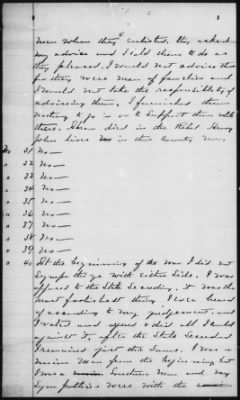 men when they enlisted. They asked
my advice and I told them to do as
they pleased. I would not advise them
for they were men of families and
I would not take the responsibility of
advising them. I furnished them
nothing to go in or to support them while
there. died in the Rebel Army
John lives in this County now.
No 31 No—
" 32 No—
" 33 No—
" 34 No—
" 35 No—
" 36 No—
" 37 No—
" 38 No—
" 39 No—
" 40 At the beginning of the war I did not
sympathize with either side. I was
opposed to the State Seceding. it was the
most foolish thing I ever heard
of according to my judgement and
I voted and used & did all I could
against it, after the State Seceded
I remained just the same. I was a
Union Man from the beginning but
I was a Southern Man and my
Sympathies were with the